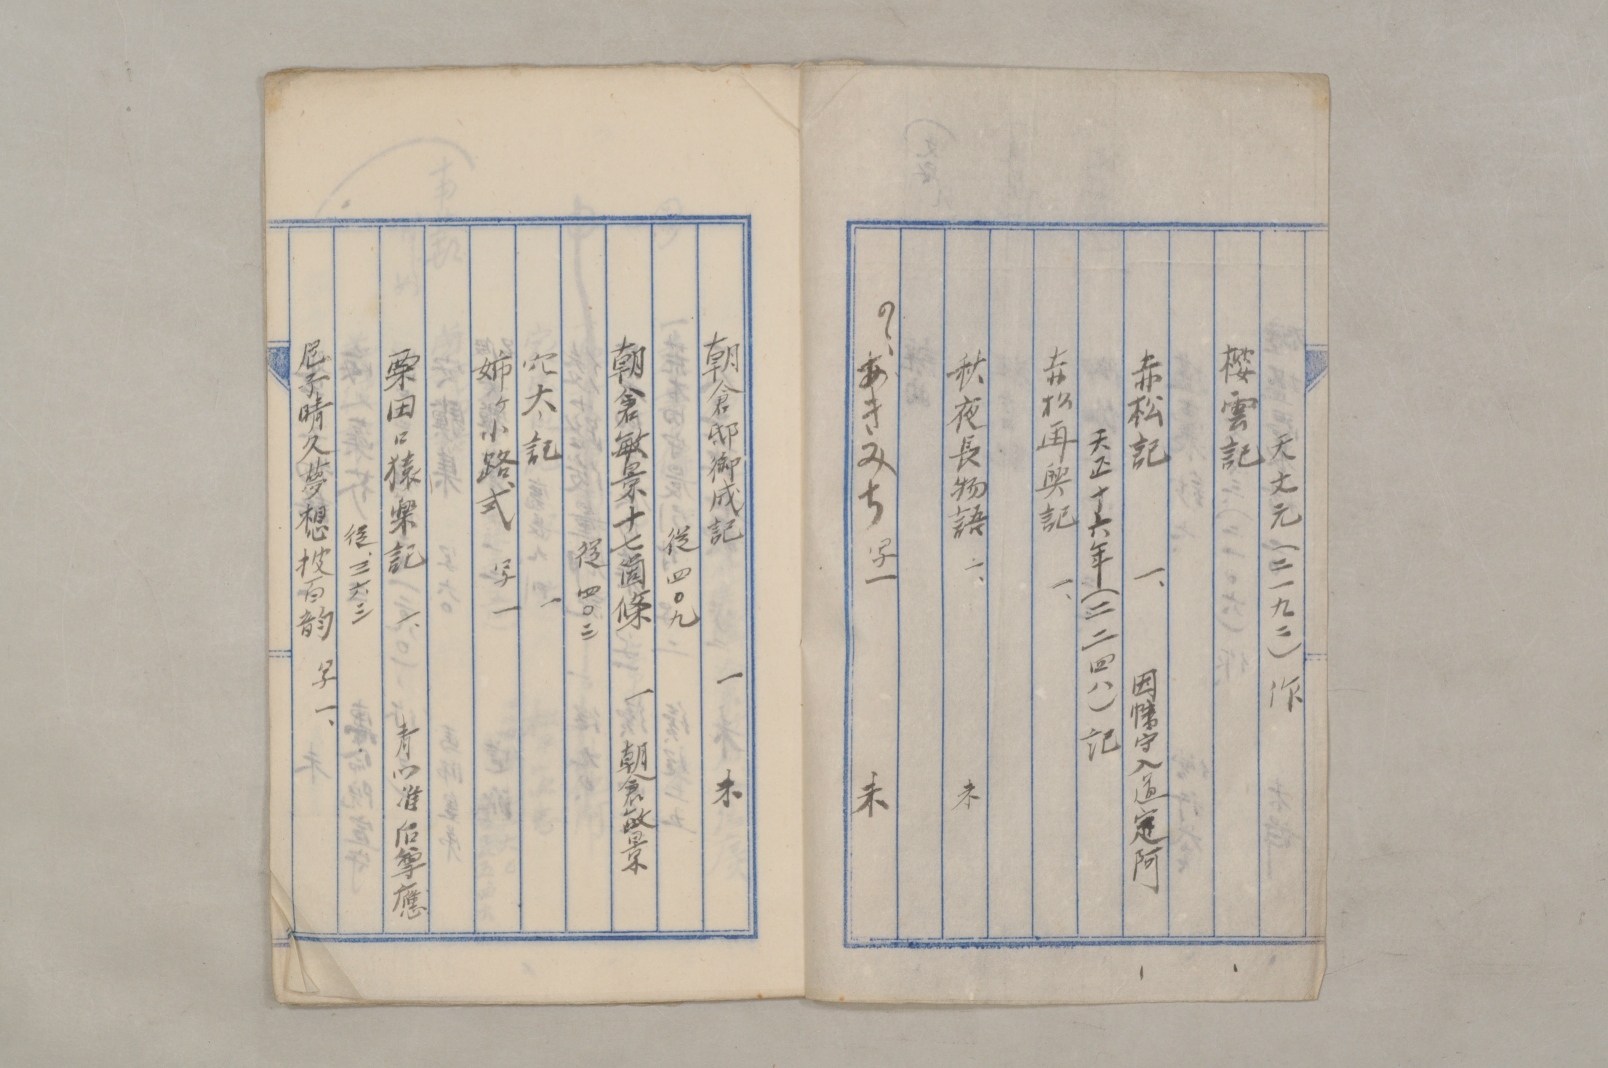 天文元(二一九二)作
櫻雲記
赤松記 一、 因幡守入道定阿
天正十六年(二二四八)記
赤松再興記 一、
秋夜長物語 二、 未
の、あきみち 写一 未
朝倉邸御成記 一 未
従四〇九
朝倉敏景十七箇條 一 朝倉敏景
従四〇三
穴太記 一
姉ヶ小路式 写一
粟田口猿楽記 一、 青門准后尊應
従、三六三
尼子晴久夢想披百韵 写一、